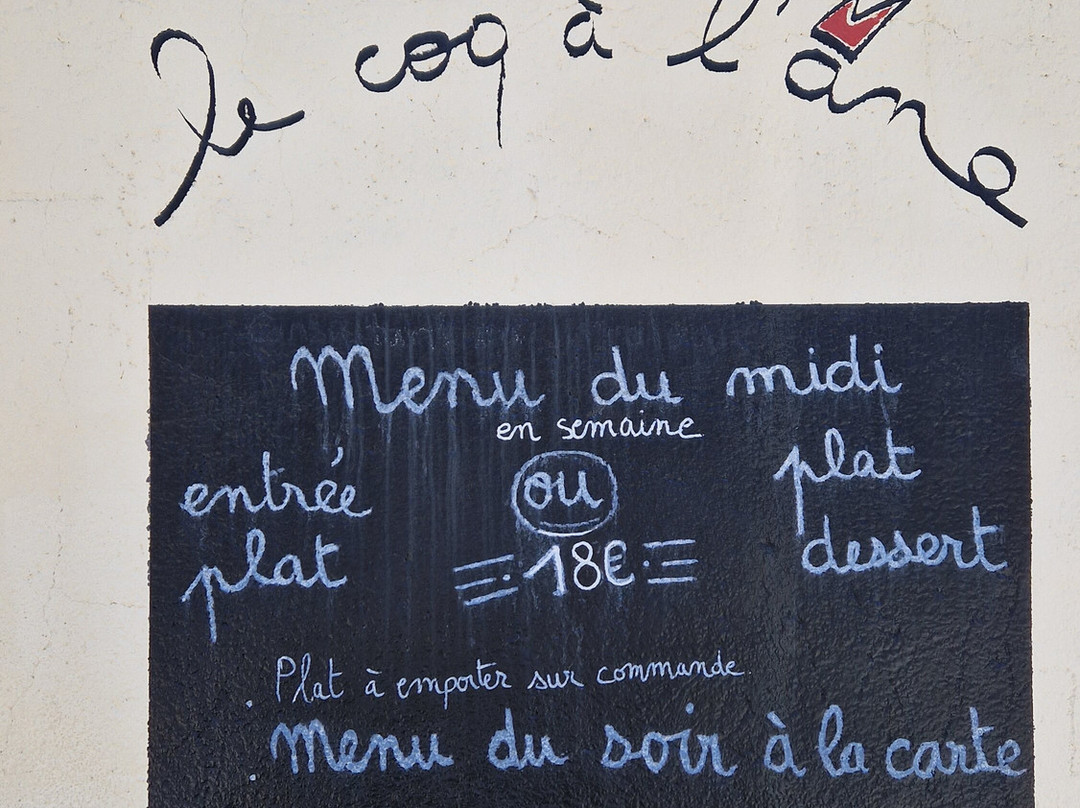 le coq à l'âne
Menu du midi
en semaine
entrée ou plat
plat 18€ dessert
. Plat à emporter sur commande
. menu du soir à la carte